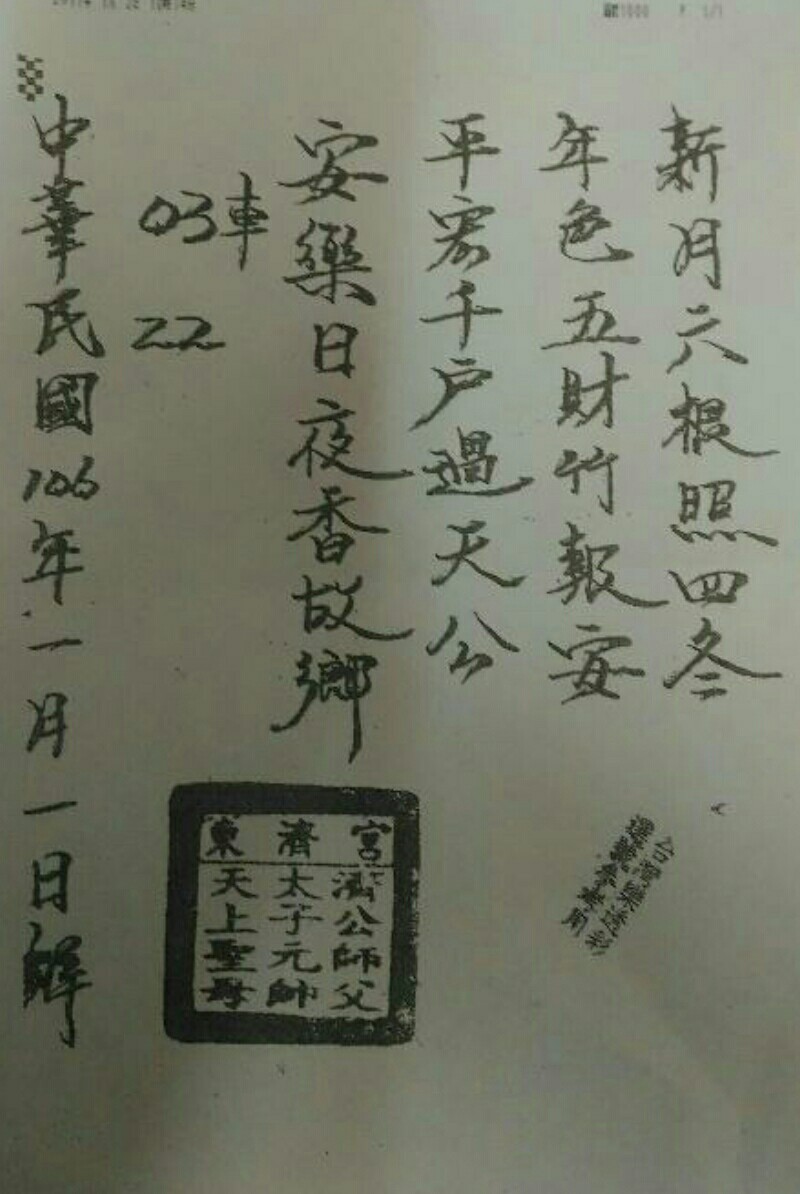 新月六根照四冬
年色五財竹報安
平宏千戶過天公
安樂日夜香故鄉
車
03
22
中華民國106年一月一日解
東濟宮
濟公師父
太子元帥
天上聖母
台灣樂透彩
選號參考用